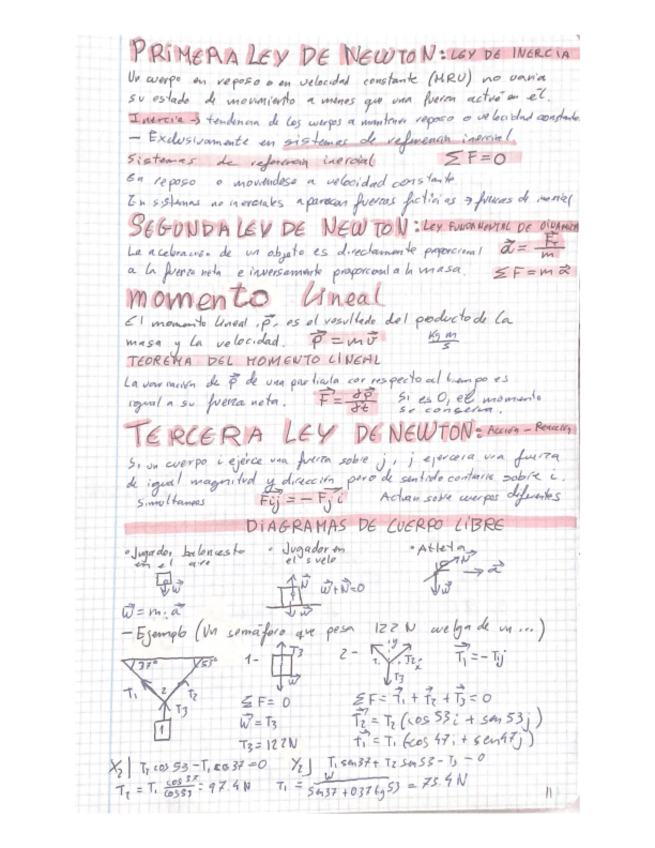 PRIMERA LEY DE NEWTON: LEY DE INERCIA
Un cuerpo en reposo o en velocidad constante (MRU) no varia
su estado de movimiento a menos que una fuerza actué en él.
Inercia → tendencia de los cuerpos a mantener reposo o velocidad constante
- Exclusivamente en sistemas de referencia inercial
Sistemas de referencia inercial ΣF=0
En reposo o moviendose a velocidad constante.
En sistemas no inerciales aparecen fuerzas ficticias → fuerzas de inercia
SEGUNDA LEY DE NEWTON: LEY FUNDAMENTAL DE DINAMICA
La aceleración de un objeto es directamente proporcional a⃗ = F⃗r/m
a la fuerza neta e inversamente proporcional a la masa. ΣF = m a⃗
momento lineal
El momento lineal, p⃗, es el resultado del producto de la
masa y la velocidad. p⃗ = m v⃗ kg m/s
TEOREMA DEL MOMENTO LINEAL
La variación de p⃗ de una particula con respecto al tiempo es
igual a su fuerza neta. F⃗ = dp⃗/dt Si es 0, el momento
se conserva.
TERCERA LEY DE NEWTON: Acción - Reacción
Si un cuerpo i ejerce una fuerza sobre j, j ejercera una fuerza
de igual magnitud y dirección pero de sentido contrario sobre i.
Simultaneas F⃗ij = - F⃗ji Actuan sobre cuerpos diferentes
DIAGRAMAS DE CUERPO LIBRE
• Jugador baloncesto • Jugador en • Atleta
en el aire el suelo
w⃗ N⃗ w⃗+N⃗=0 w⃗ N a⃗
w⃗ w⃗
w⃗ = m·a⃗
- Ejemplo (Un semáforo que pesa 122 N cuelga de un ...)
37° 53° 1- T3 2- y T⃗i = -Tij
T1 2 T2 w⃗ T2 x
T3 T3
1 ΣF = 0 ΣF = T⃗1 + T⃗2 + T⃗3 = 0
w⃗ = T3 T⃗2 = T2 (cos 53i + sen 53j)
T3 = 122N T⃗1 = T1 (cos 47i + sen47j)
X2| T2 cos 53 - T1 cos 37 = 0 Y2| T1 sen 37 + T2 sen 53 - T3 = 0
T2 = T1 cos 37/cos 53 = 97.4 N T1 = w/sen37 + cos37 tg 53 = 73.4 N
11